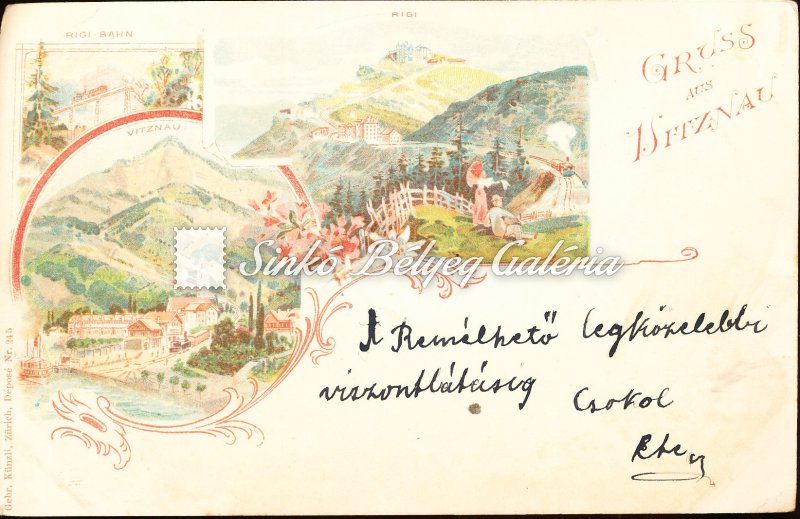 RIGI
RIGI-BAHN
GRUSS
AUS
VITZNAU
VITZNAU
Sinkó Bélyeg Galéria
A Remélhető legközelebbi
viszontlátásig Csokol
Gebr. Künzli, Zürich, Deposé Nr. 345